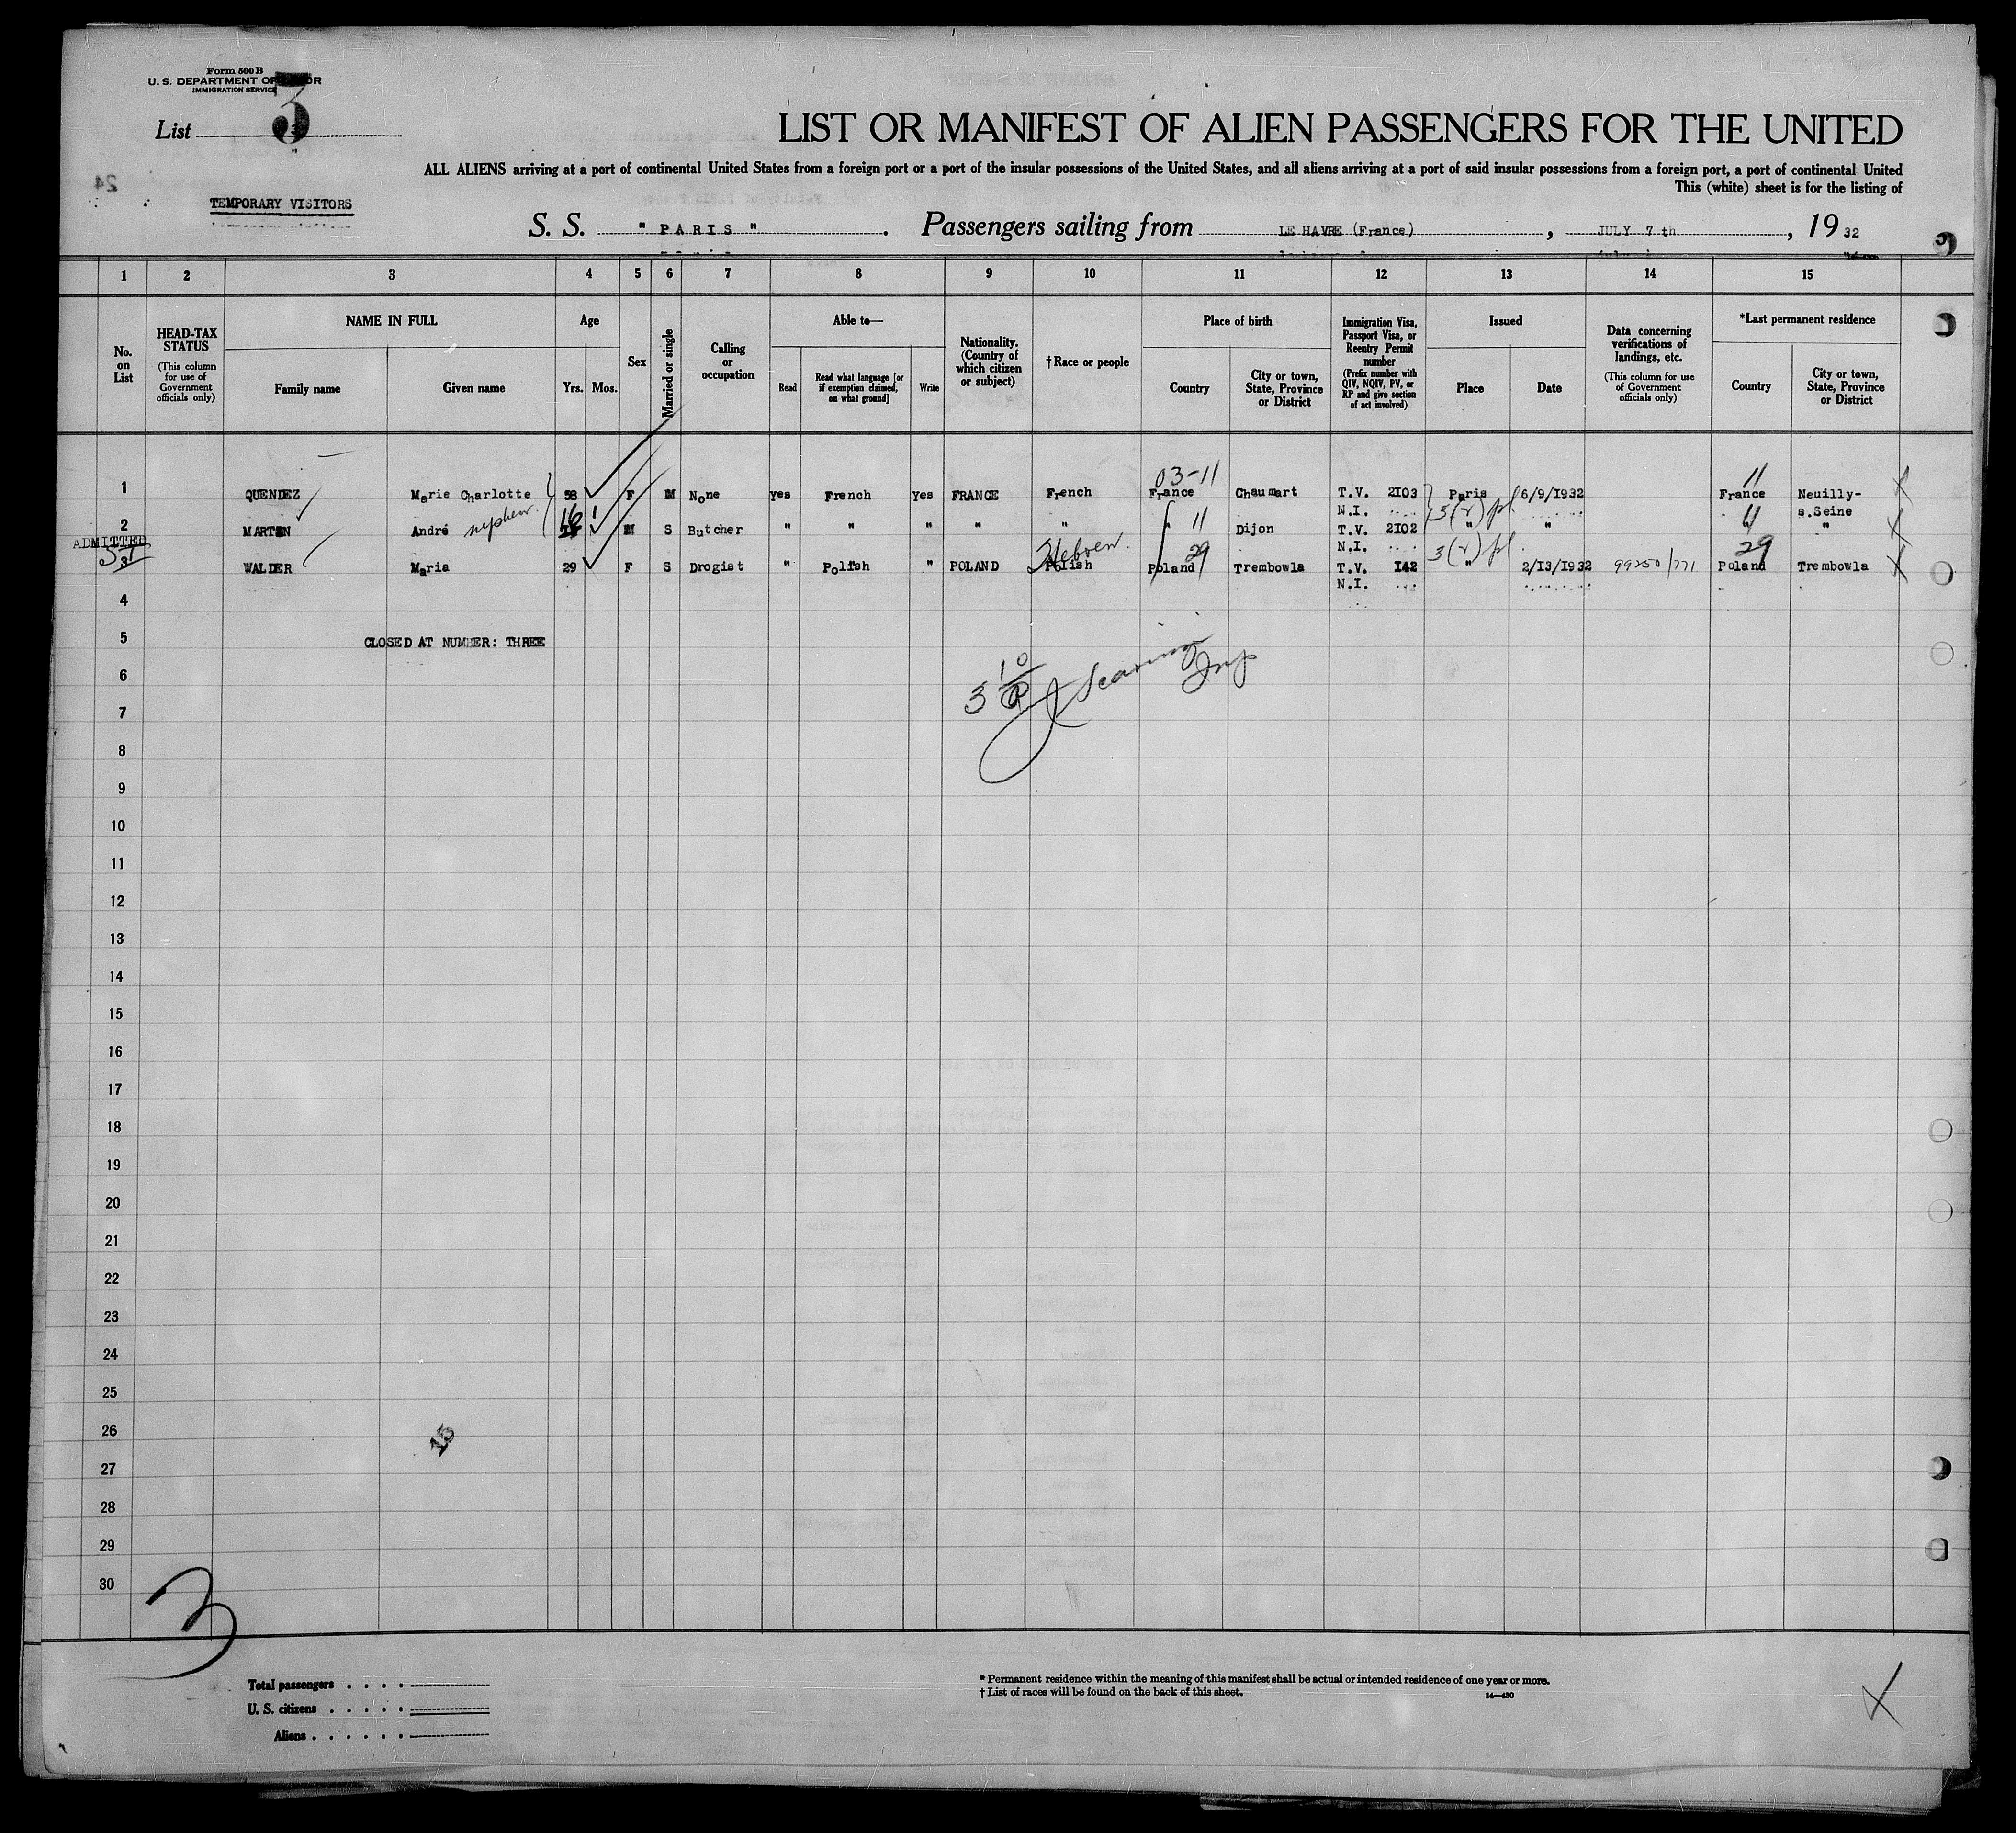 Form 500 B
U. S. DEPARTMENT OF LABOR
IMMIGRATION SERVICE
List 3
24
TEMPORARY VISITORS
LIST OR MANIFEST OF ALIEN PASSENGERS FOR THE UNITED
ALL ALIENS arriving at a port of continental United States from a foreign port or a port of the insular possessions of the United States, and all aliens arriving at a port of said insular possessions from a foreign port, a port of continental United
This (white) sheet is for the listing of
S. S. " PARIS " . Passengers sailing from LE HAVRE (France) , JULY 7 th , 19 32
1 2 3 4 5 6 7 8 9 10 11 12 13 14 15
No. on List
HEAD-TAX STATUS
(This column for use of Government officials only)
NAME IN FULL
Family name Given name
Age
Yrs. Mos.
Sex
Married or single
Calling or occupation
Able to—
Read
Read what language [or if exemption claimed, on what ground]
Write
Nationality. (Country of which citizen or subject)
†Race or people
Place of birth
Country
City or town, State, Province or District
Immigration Visa, Passport Visa, or Reentry Permit number
(Prefix number with QIV, NQIV, PV, or RP and give section of act involved)
Issued
Place Date
Data concerning verifications of landings, etc.
(This column for use of Government officials only)
*Last permanent residence
Country
City or town, State, Province or District
03-11 11
1 QUENDEZ Marie Charlotte 58 F M None yes French yes FRANCE French France Chaumart T.V. 2103 Paris 6/9/1932 France Neuilly-
N.I. 3(2) pl s.Seine
16 11 11
2 MARTIN André nephew M S Butcher " " " " " " Dijon T.V. 2102 " " " "
ADMITTED
SI
Hebrew 29 N.I. 3(2) pl 29
3 WALDER Maria 29 F S Drogist " Polish " POLAND Polish Poland Trembowla T.V. 142 " 2/13/1932 99250/771 Poland Trembowla
N.I.
4
5 CLOSED AT NUMBER: THREE
6
7
8
9
10
11
12
13
14
15
16
17
18
19
20
21
22
23
24
25
26
27
28
29
30
15
3
Total passengers . . . .
U. S. citizens . . . . .
Aliens . . . . . .
* Permanent residence within the meaning of this manifest shall be actual or intended residence of one year or more.
† List of races will be found on the back of this sheet.
14—430
X